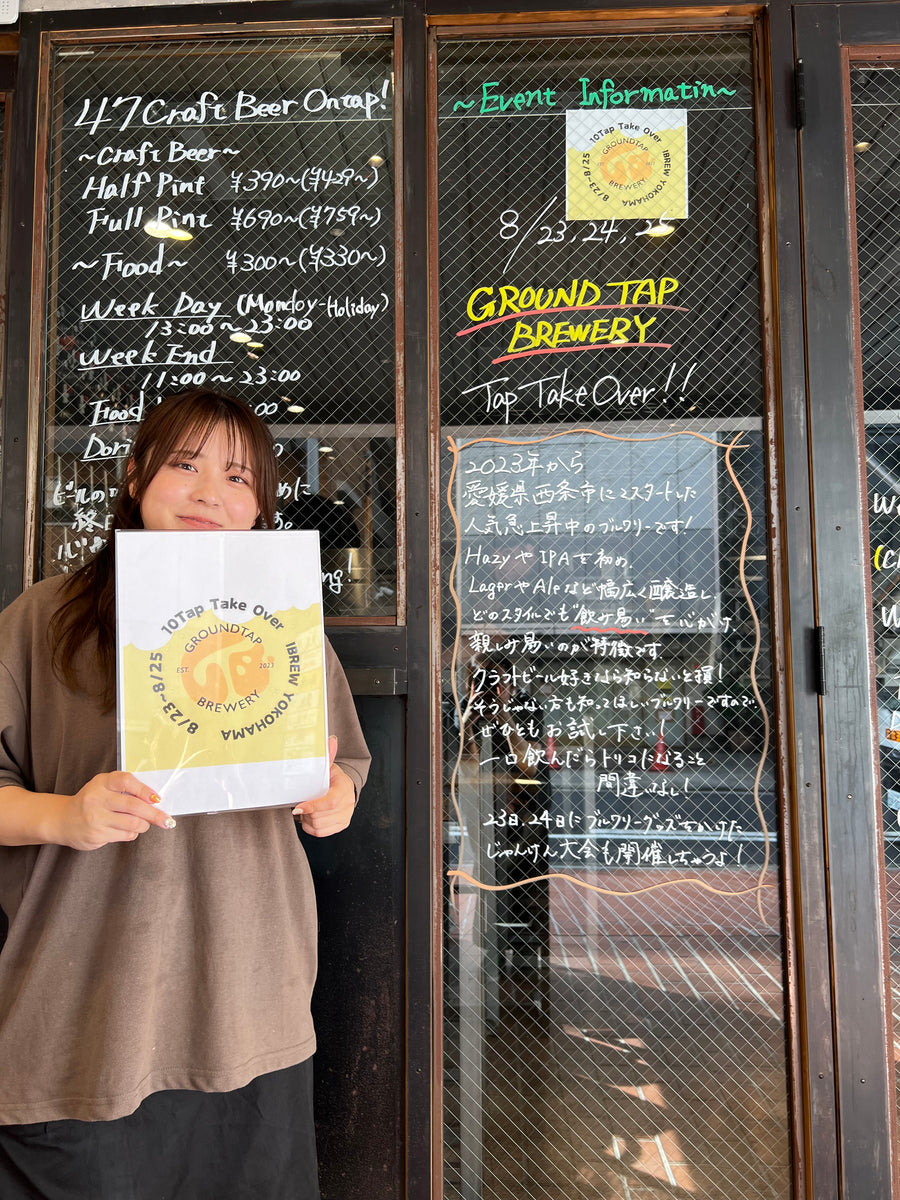 47 Craft Beer Ontap!
~Craft Beer~
Half Pint ¥390~(¥429~)
Full Pint ¥690~(¥759~)
~Food~ ¥300~(¥330~)
Week Day (Monday-Holiday)
13:00~23:00
Week End
11:00~23:00
Food
:00
Dori
ビールの
めに
終日
す。
ng!
10Tap Take Over
IBREW YOKOHAMA
8/23~8/25
GROUNDTAP
EST. 2023
BREWERY
~Event Informatin~
10Tap Take Over
IBREW YOKOHAMA
8/23~8/25
GROUNDTAP
BREWERY
8/23, 24, 25
GROUND TAP
BREWERY
Tap Take Over!!
2023年から
愛媛県西条市にてスタートした
人気急上昇中のブルワリーです!
Hazy や IPA を初め、
Lager や Ale など幅広く醸造し、
どのスタイルでも"飲み易い"を心がけ、
親しみ易いのが特徴です。
クラフトビール好きなら知らないと損!
そうじゃない方も知ってほしいブルワリーですので
ぜひともお試し下さい!
一口飲んだらトリコになること
間違いなし!
23日、24日にブルワリーグッズをかけた
じゃんけん大会も開催しちゃうよ!